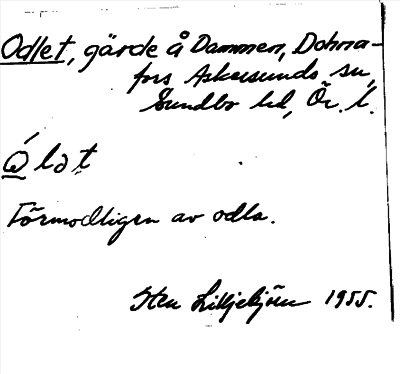 Odlet, gärde å Dammen, Dohna-
fors Askersunds sn,
Sundbo hd, Ör. l.
Förmodligen av odla.
Sten Liljebjörn 1955.